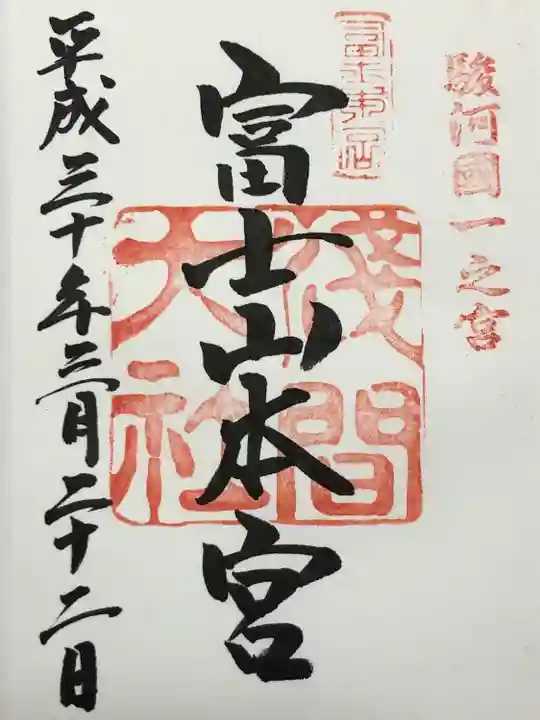 駿河國一之宮
富士山本宮
浅間
大社
平成三十年三月二十二日